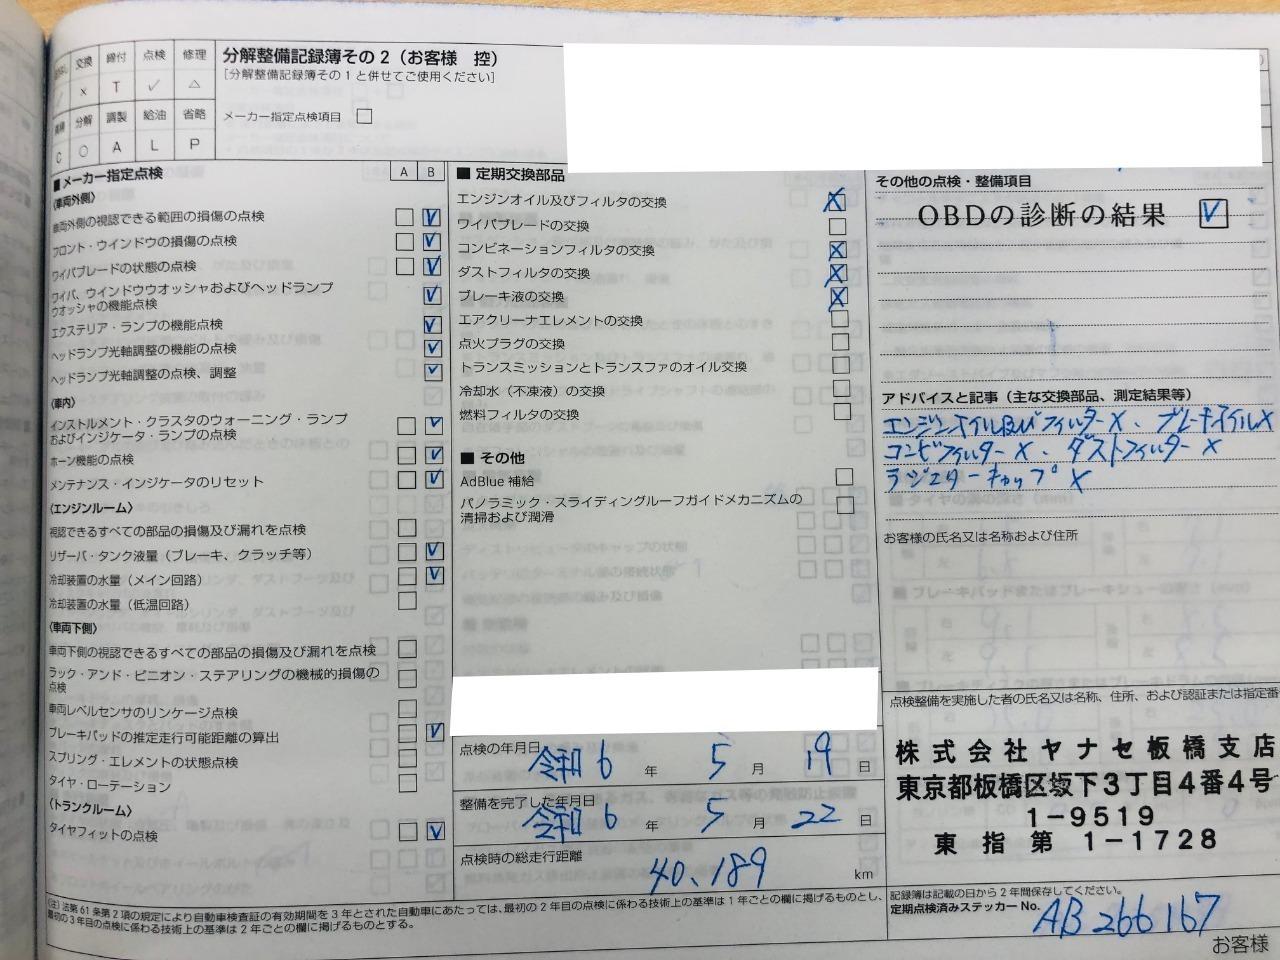 交換 締付 点検 修理
× T ✓ △
分解 調製 給油 省略
C ○ A L P
分解整備記録簿その2（お客様 控）
[分解整備記録簿その1と併せてご使用ください]
メーカー指定点検項目 □
■メーカー指定点検 A B
〈車両外側〉
車両外側の視認できる範囲の損傷の点検
フロント・ウインドウの損傷の点検
ワイパブレードの状態の点検
ワイパ、ウインドウウオッシャおよびヘッドランプ
ウオッシャの機能点検
エクステリア・ランプの機能点検
ヘッドランプ光軸調整の機能の点検
ヘッドランプ光軸調整の点検、調整
〈車内〉
インストルメント・クラスタのウォーニング・ランプ
およびインジケータ・ランプの点検
ホーン機能の点検
メンテナンス・インジケータのリセット
〈エンジンルーム〉
視認できるすべての部品の損傷及び漏れを点検
リザーバ・タンク液量（ブレーキ、クラッチ等）
冷却装置の水量（メイン回路）
冷却装置の水量（低温回路）
〈車両下側〉
車両下側の視認できるすべての部品の損傷及び漏れを点検
ラック・アンド・ピニオン・ステアリングの機械的損傷の
点検
車両レベルセンサのリンケージ点検
ブレーキパッドの推定走行可能距離の算出
スプリング・エレメントの状態点検
タイヤ・ローテーション
〈トランクルーム〉
タイヤフィットの点検
■ 定期交換部品
エンジンオイル及びフィルタの交換
ワイパブレードの交換
コンビネーションフィルタの交換
ダストフィルタの交換
ブレーキ液の交換
エアクリーナエレメントの交換
点火プラグの交換
トランスミッションとトランスファのオイル交換
冷却水（不凍液）の交換
燃料フィルタの交換
■ その他
AdBlue 補給
パノラミック・スライディングルーフガイドメカニズムの
清掃および潤滑
点検の年月日
令和6 年 5 月 19 日
整備を完了した年月日
令和6 年 5 月 22 日
点検時の総走行距離
40,189 km
その他の点検・整備項目
OBDの診断の結果
アドバイスと記事（主な交換部品、測定結果等）
エンジンオイル及びフィルター×、ブレーキオイル×
コンビフィルター×、ダストフィルター×
ラジエターキャップ×
お客様の氏名又は名称および住所
点検整備を実施した者の氏名又は名称、住所、および認証または指定番
株式会社ヤナセ板橋支店
東京都板橋区坂下3丁目4番4号
1-9519
東指第 1-1728
記録簿は記載の日から2年間保存してください。
定期点検済みステッカーNo. AB266167
(注) 法第61条第2項の規定により自動車検査証の有効期間を3年とされた自動車にあたっては、最初の2年目の点検に係わる技術上の基準は1年ごとの欄に掲げるものとし、
最初の3年目の点検に係わる技術上の基準は2年ごとの欄に掲げるものとする。
お客様